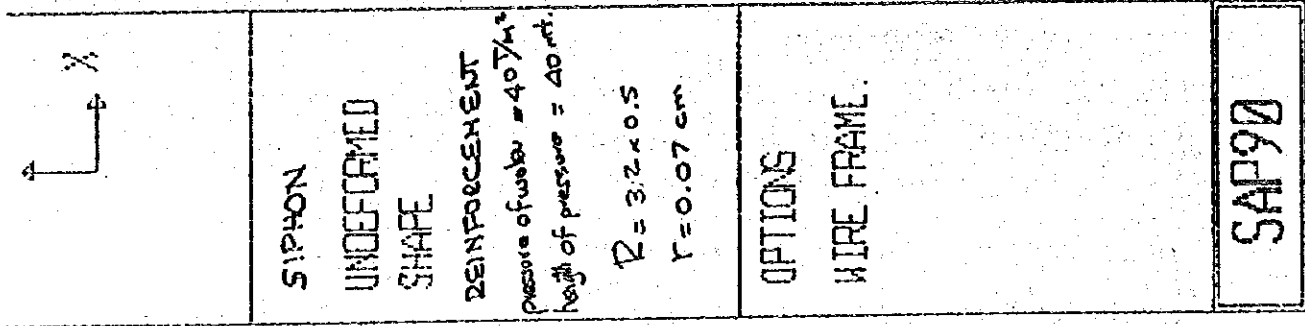 X
SIPHON
UNDEFORMED
SHAPE
REINFORCEMENT
pressure of water = 40 T/m²
height of pressure = 40 mt.
R = 3.2 x 0.5
r = 0.07 cm
OPTIONS
WIRE FRAME.
SAP90